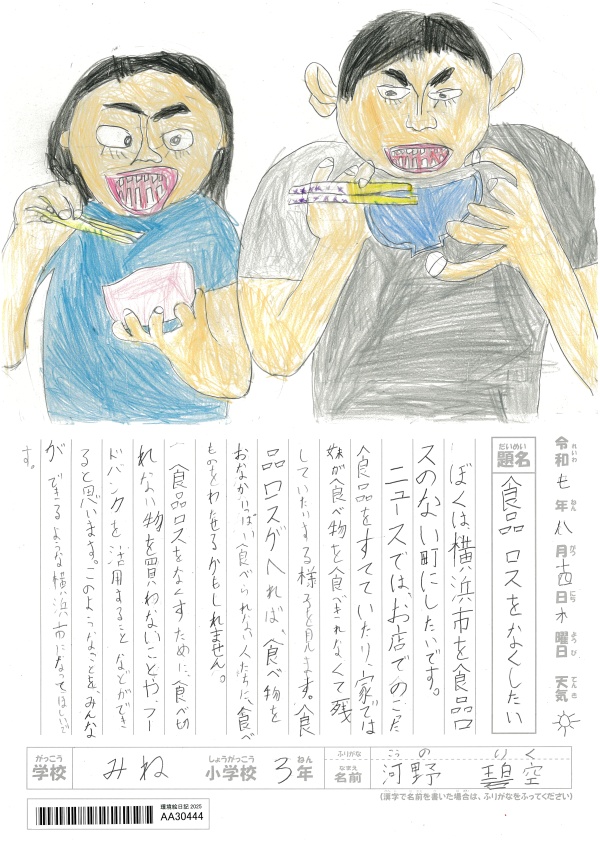 令和七年八月十四日木曜日 天気
題名 食品ロスをなくしたい
ぼくは横浜市を食品ロ
スのない町にしたいです。
ニュースでは、お店でのこった
食品をすてていたり、家では
妹が食べ物を食べきれなくて残
していたりする様子を見ます。食
品ロスがへれば、食べ物を
おなかいっぱい食べられない人たちに、食べ
ものをわたせるかもしれません。
食品ロスをなくすために、食べ切
れない物を買わないことや、フー
ドバンクを活用することなどができ
ると思います。このようなことを、みんな
ができるような横浜市になってほしいで
す。
がっこう しょうがっこう ねん ふりがな こうの りく
学校 みね 小学校 3年 なまえ 名前 河野 碧空
(漢字で名前を書いた場合は、ふりがなをふってください)
環境絵日記2025
AA30444